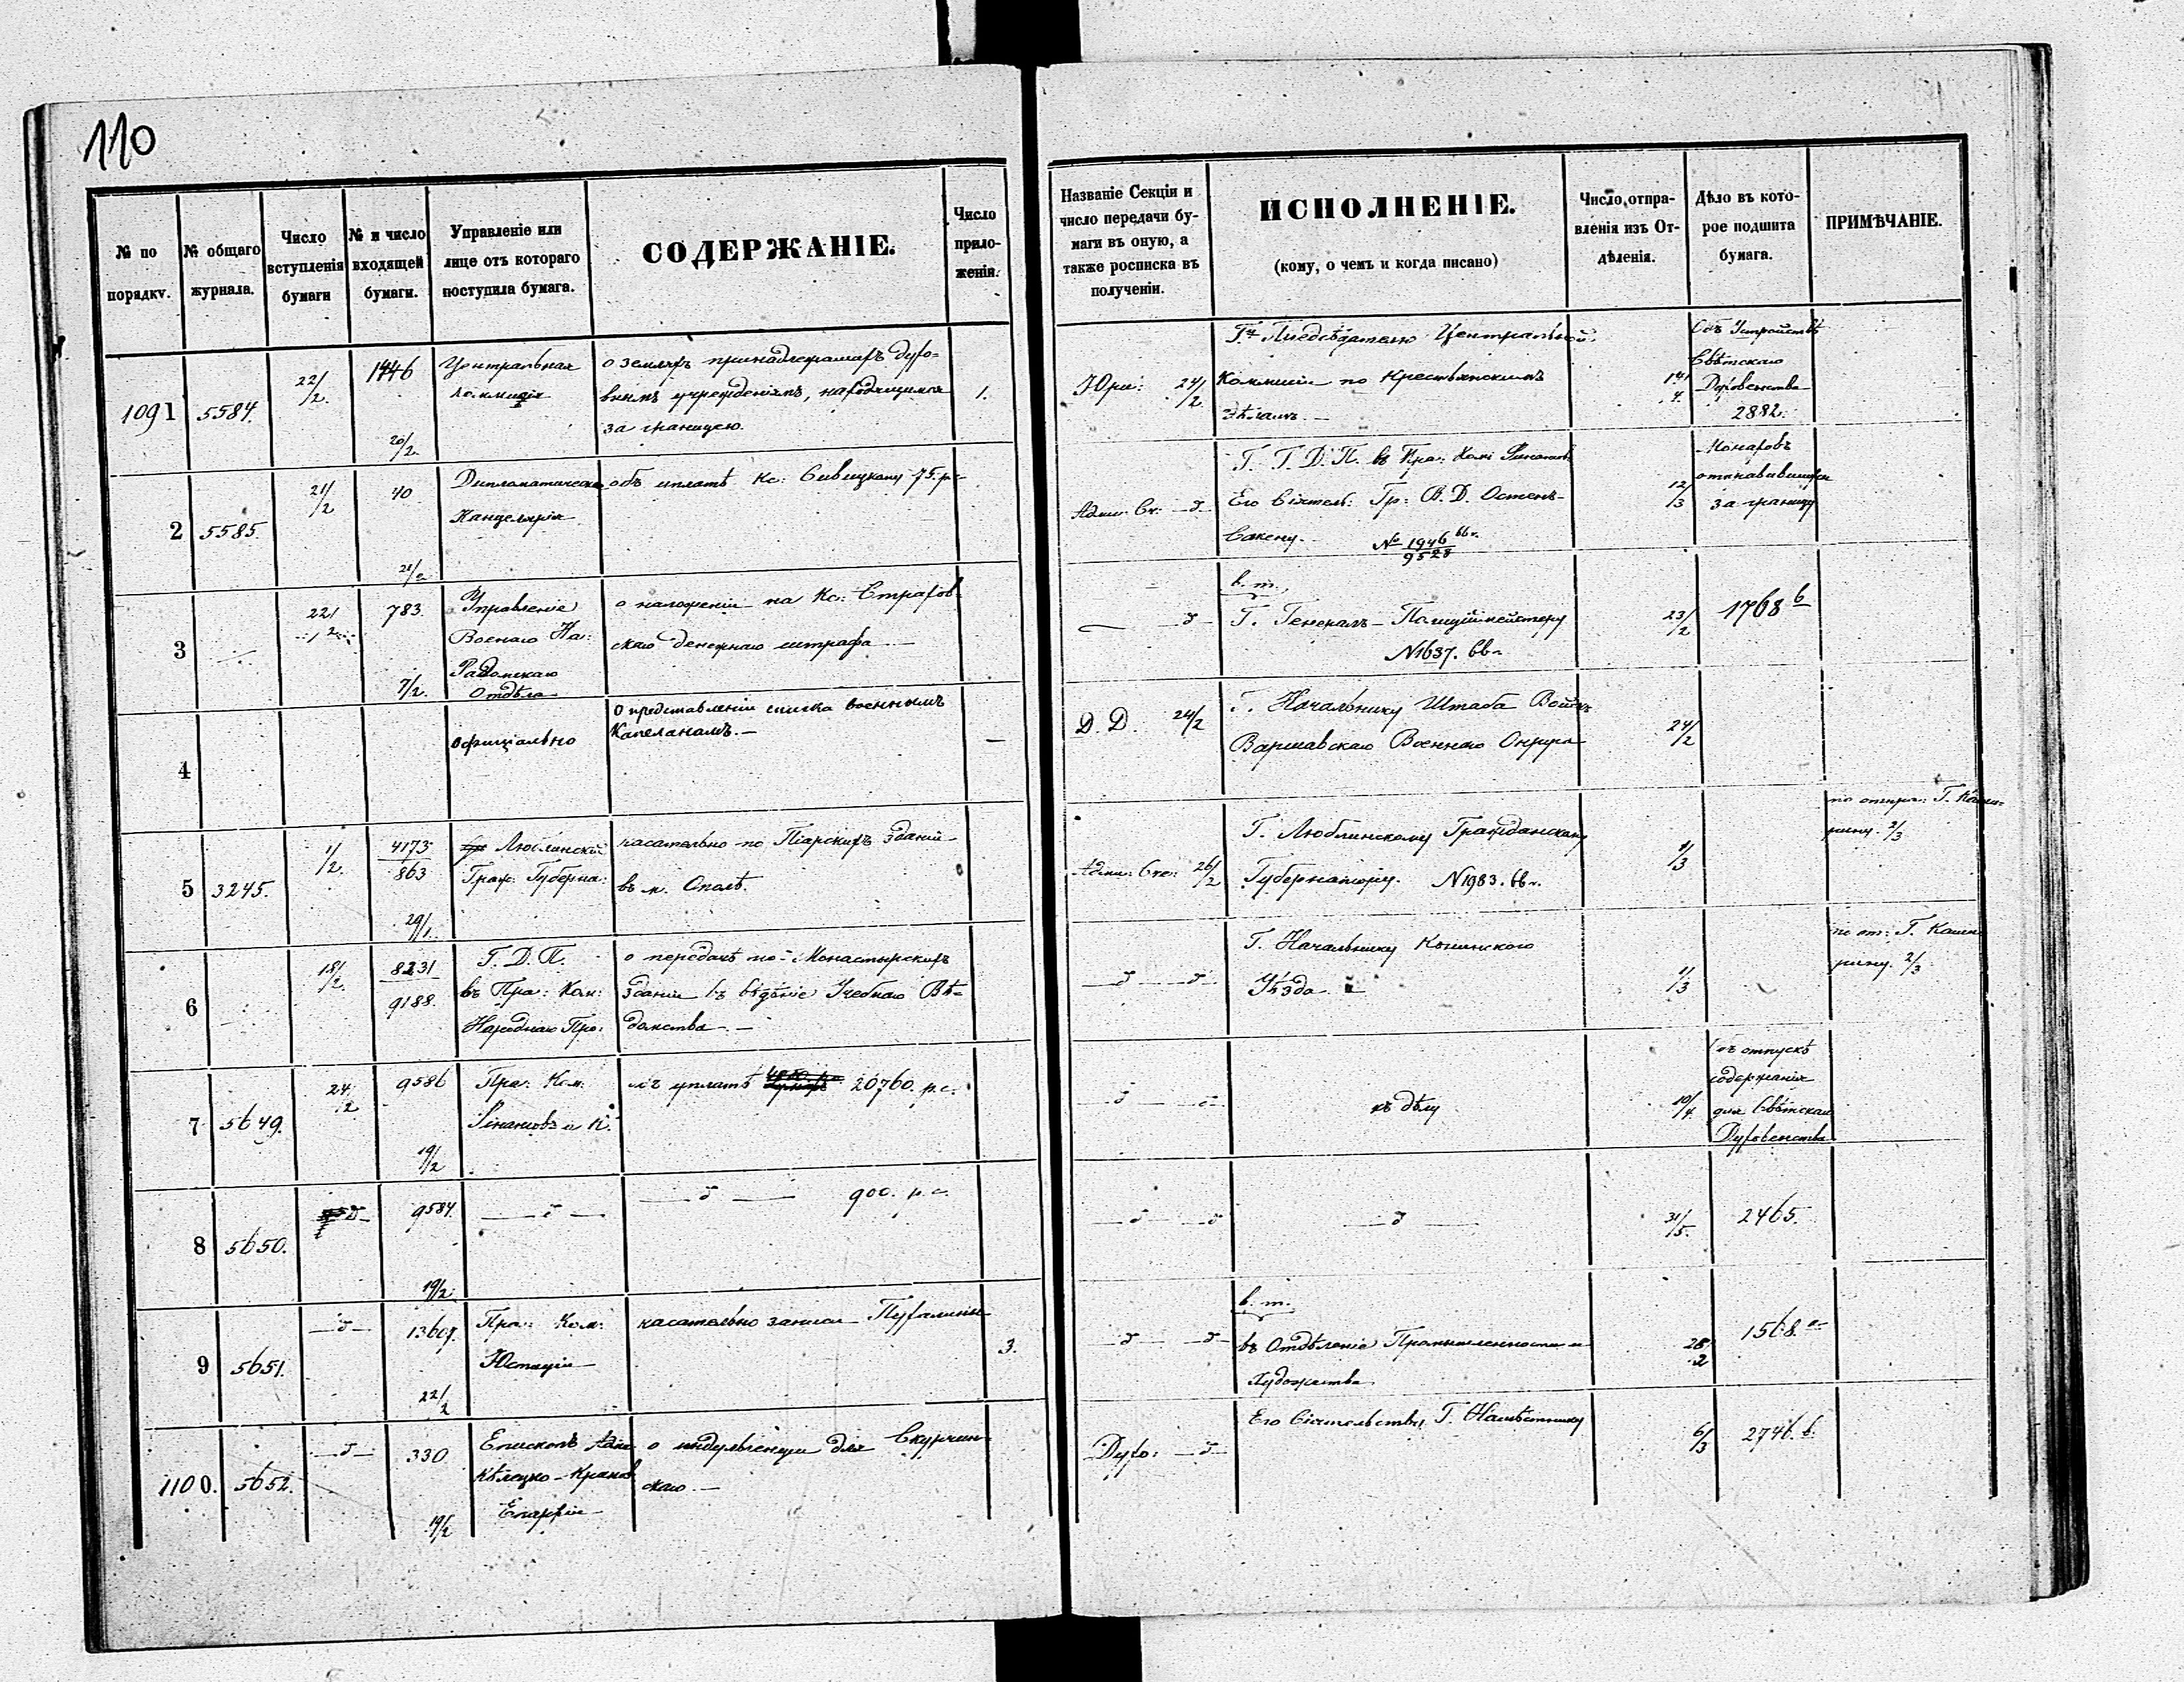 110
№ по порядку.
№ общаго журнала.
Число вступленія бумаги
№ и число входящей бумаги.
Управленіе или лице отъ котораго поступила бумага.
СОДЕРЖАНІЕ.
Число приложенія.
Названіе Секціи и число передачи бумаги въ оную, а также росписка въ полученіи.
ИСПОЛНЕНІЕ.
(кому, о чемъ и когда писано)
Число отправленія изъ Отдѣленія.
Дѣло въ которое подшита бумага.
ПРИМѢЧАНІЕ.
1091 5584. 22/2 1446 20/2
Центральная
Коммисія
о земляхъ принадлежащихъ духо-
внымъ учрежденіямъ, находящимся
за границею.
1.
Юри: 24/2
Гну Предсѣдателю Центральной
Коммисіи по Крестьянскимъ
дѣламъ.—
14/4.
Объ Устройствѣ
Свѣтскаго
Духовенства
2882.
2 5585. 21/2 40 21/2
Дипломатическая
Канцелярія
объ уплатѣ Кс: Сивицкому 75. р.
Адми: Ск: —д—
Г. Г. Д. П. въ Пра: Ком: Финансов
Его Сіятель: Гр: В. Д. Остенъ-
Сакену. № 1946/9528 66 г.
12/3
Монаховъ
отправившихся
за границу
3 22/2 783 7/2.
Управленіе
Военнаго На:
Радомскаго
Отдѣла
о наложеніи на Кс: Страхов-
скаго денежнаго штрафа —
— —д—
в. т.
Г. Генералъ-Полиціймейстеру
№1637. 66 г.
23/2
1768 б
4
Офиціально
О представленіи списка военнымъ
Капеланамъ.—
—
Д. Д. 24/2
Г. Начальнику Штаба Войскъ
Варшавскаго Военнаго Округа
24/2
5 3245. 1/2. 4173/863 29/1.
Люблинскій
Граж: Губерна:
касательно по-Піарскихъ зданій
въ м. Ополѣ.
Адми: Сек: 26/2
Г. Люблинскому Гражданскому
Губернатору. №1983. 66 г.
1/3
по отпра: Г. Кашин-
рину. 2/3
6 18/2. 8231/9188.
Г. Д. П.
въ Пра: Ком:
Народнаго Про:
о передачѣ по-Монастырскихъ
зданій въ вѣдѣніе Учебнаго Вѣ-
домства.—
—д— —д—
Г. Начальнику Конинскаго
Уѣзда.
1/3
по от: Г. Кашин-
рину. 2/3
7 5649. 24/2 9586 19/2
Пра: Ком:
Финансовъ и К.
объ уплатѣ 20760. р.с.
—д— —д—
къ дѣлу
10/4.
Объ отпускѣ
содержанія
для Свѣтскаго
Духовенства
8 5650. —д— 9584. 19/2.
—д—
—д— 900. р.с.
—д— —д—
—д—
31/5.
2465.
9 5651. —д— 13607. 22/2
Пра: Ком:
Юстиціи
касательно записи Пухалины
3.
—д— —д—
в. т.
въ Отдѣленіе Промышленности и
Художества
28/2
1568. а
1100. 5652. —д— 330 19/2
Епископъ Адми:
Кѣлецко-Краков
Епархіи
о индульгенціи для Скурчин-
скаго.—
Духо: —д—
Его Сіятельству Г. Намѣстнику
6/3
2746. б.